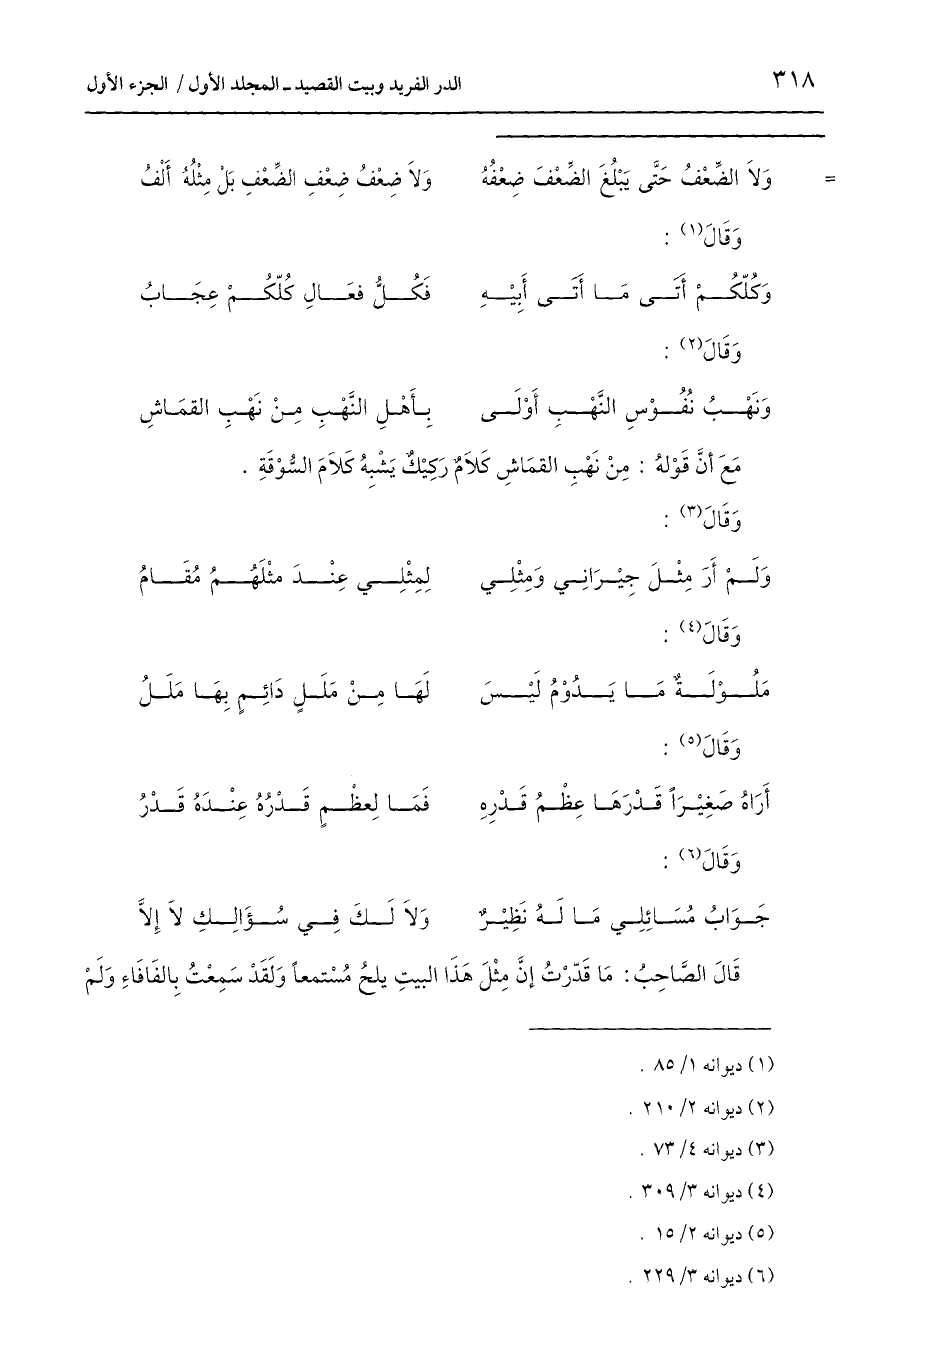 ٣١٨ الدر الفريد وبيت القصيد ـ المجلد الأول / الجزء الأول
= وَلاَ الضِّعْفُ حَتَّى يَبْلُغَ الضِّعْفَ ضِعْفُهُ وَلاَ ضِعْفُ ضِعْفِ الضِّعْفِ بَلْ مِثْلُهُ أَلْفُ
وَقَالَ(١) :
وَكُلّكُمْ أَتَى مَا أَتَى أَبِيْهِ فَكُلُّ فعَالِ كُلّكُمْ عِجَابُ
وَقَالَ(٢) :
وَنَهْبُ نُفُوْسِ النَّهْبِ أَوْلَى بِأَهْلِ النَّهْبِ مِنْ نَهْبِ القمَاشِ
مَعَ أنَّ قَوْلهُ : مِنْ نَهْبِ القمَاشِ كَلاَمٌ رَكِيْكٌ يَشْبِهُ كَلاَمَ السُّوْقَةِ .
وَقَالَ(٣) :
وَلَمْ أَرَ مِثْلَ جِيْرَانِي وَمِثْلِي لِمِثْلِي عِنْدَ مثْلَهُمُ مُقَامُ
وَقَالَ(٤) :
مَلُوْلَةٌ مَا يَدُوْمُ لَيْسَ لَهَا مِنْ مَلَلٍ دَائِمٍ بِهَا مَلَلُ
وَقَالَ(٥) :
أَرَاهُ صَغِيْرَاً قَدْرَهَا عِظْمُ قَدْرِهِ فَمَا لِعظْمٍ قَدْرُهُ عِنْدَهُ قَدْرُ
وَقَالَ(٦) :
جَوَابُ مُسَائِلِي مَا لَهُ نَظِيْرٌ وَلاَ لَكَ فِي سُؤَالِكِ لاَ إِلاَّ
قَالَ الصَّاحِبُ : مَا قَدّرْتُ إنَّ مِثْلَ هَذَا البيتِ يلجُ مُسْتمعاً وَلَقَدْ سَمِعْتُ بِالفَافَاءِ وَلَمْ
(١) ديوانه ١/ ٨٥ .
(٢) ديوانه ٢/ ٢١٠ .
(٣) ديوانه ٤/ ٧٣ .
(٤) ديوانه ٣/ ٣٠٩ .
(٥) ديوانه ٢/ ١٥ .
(٦) ديوانه ٣/ ٢٢٩ .